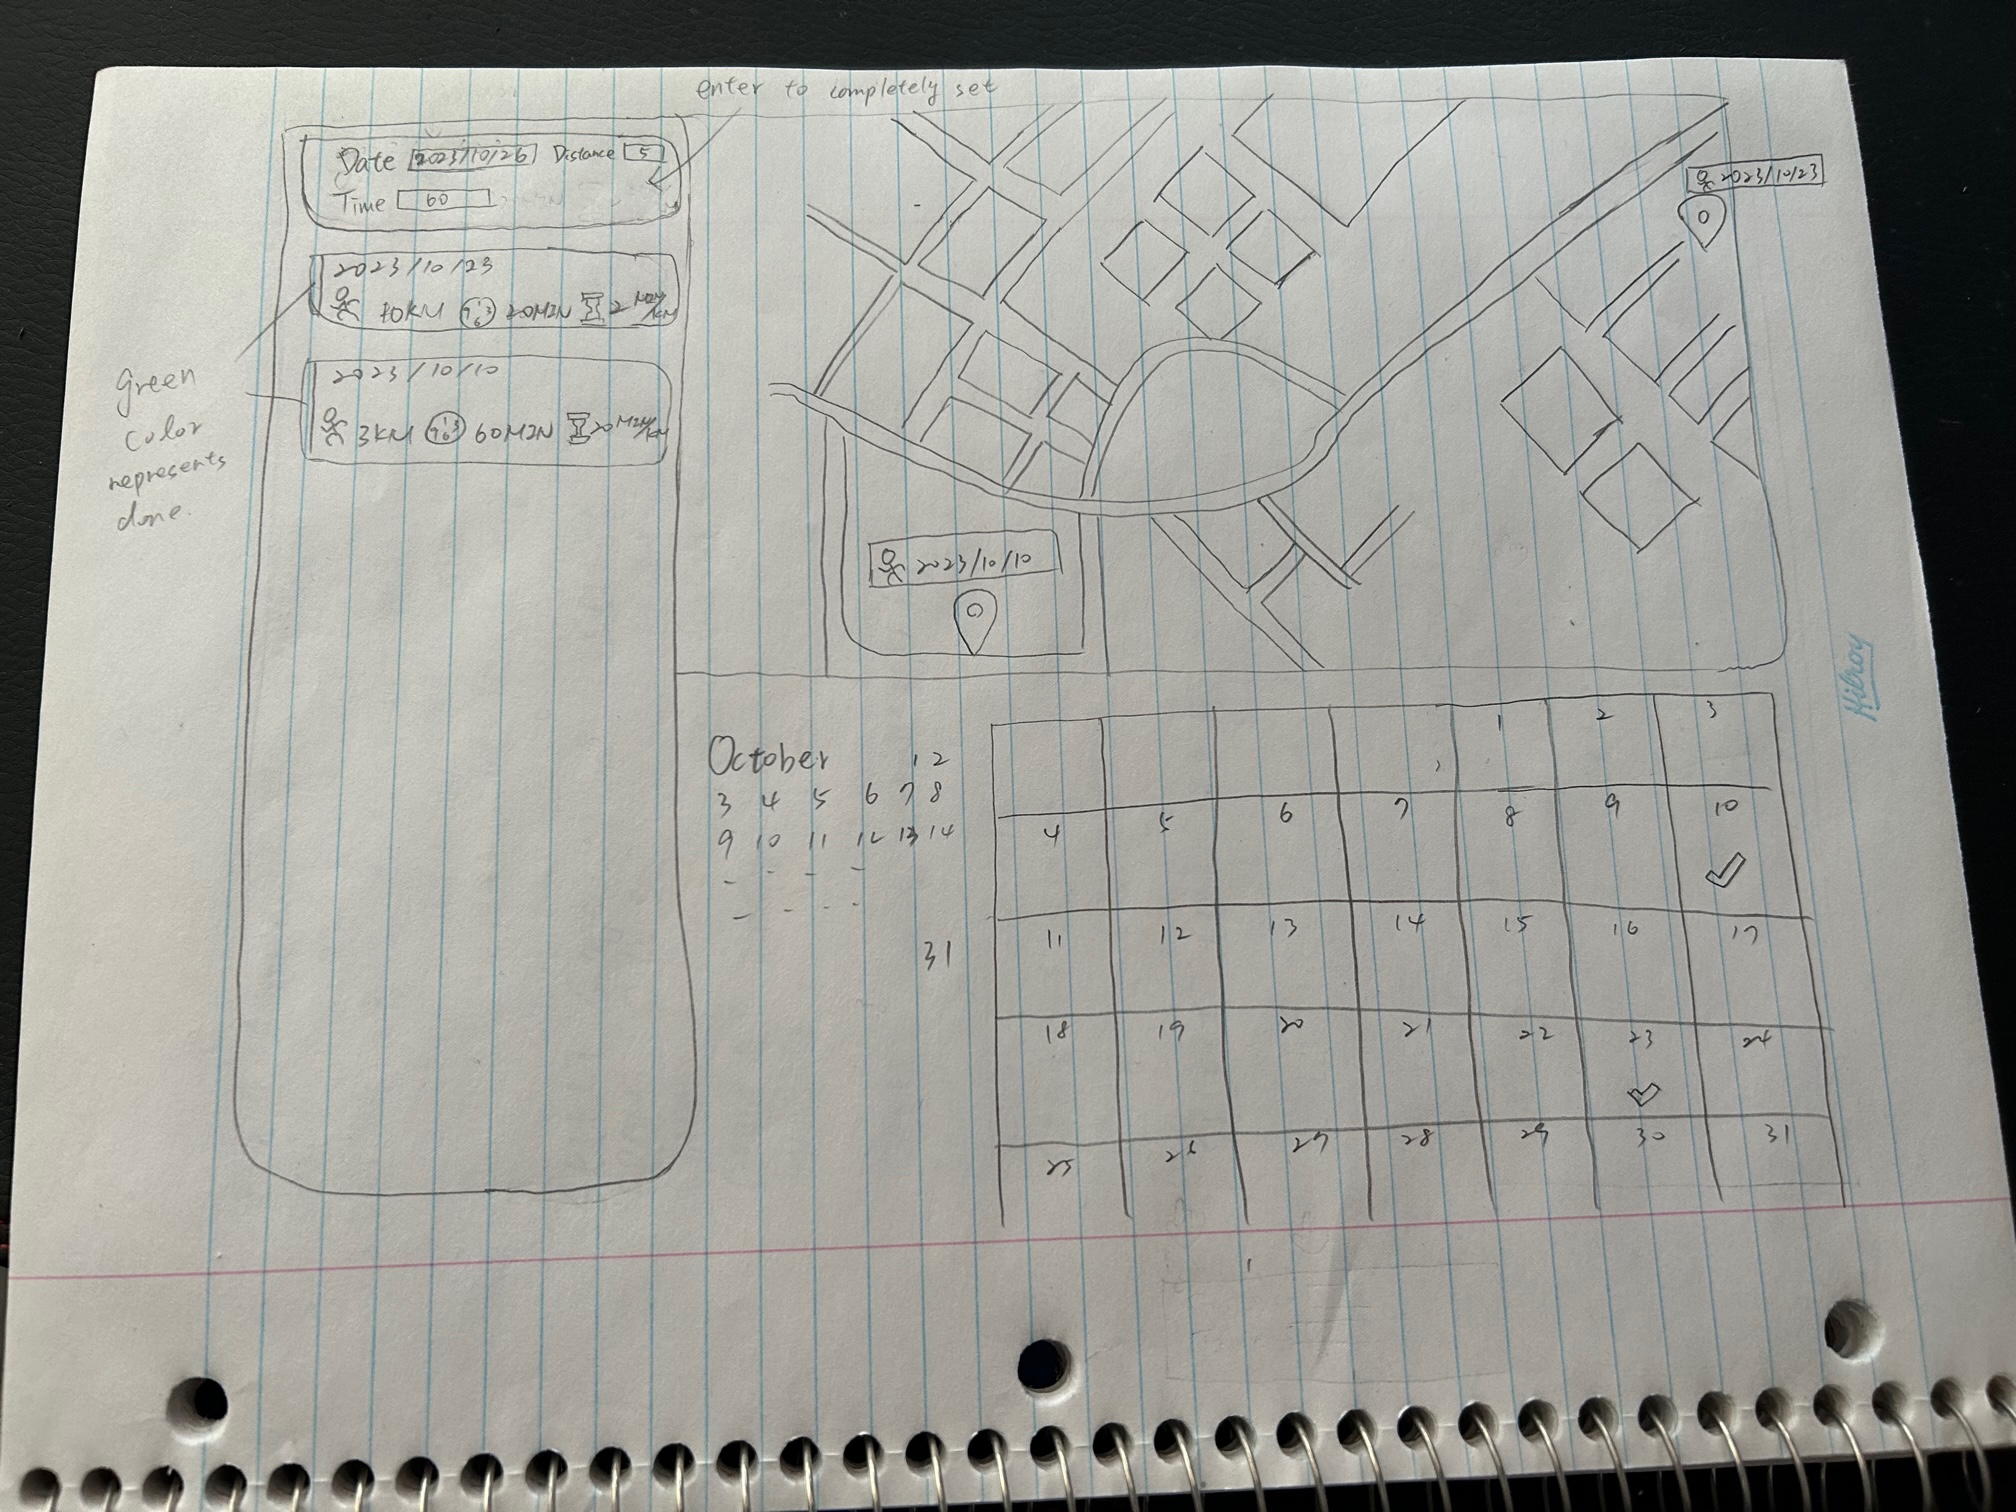 enter to completely set
Date 2023/10/26 Distance 5
Time 60
2023/10/23
10KM 20MIN 2 MIN/KM
2023/10/10
3KM 60MIN 20 MIN/KM
Green
color
represents
done.
2023/10/23
2023/10/10
Hilroy
October 1 2
3 4 5 6 7 8
9 10 11 12 13 14
- - - -
- - - -
31
1 2 3
4 5 6 7 8 9 10
11 12 13 14 15 16 17
18 19 20 21 22 23 24
25 26 27 28 29 30 31